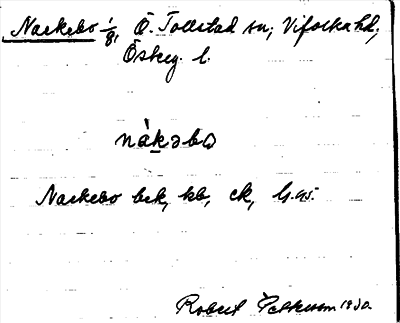 Narkebo 1/8, Ö. Tollstad sn; Vifolka hd;
Österg. l.
nàkəbo
Narkebo brk, kb, ck,
Robert Pettersson 1930.